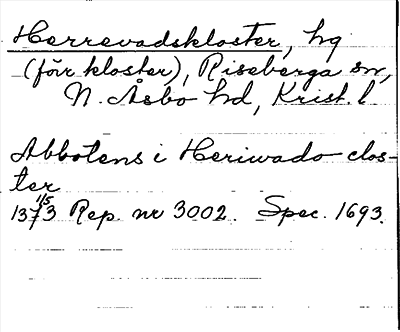 Herrevadskloster, hg
(förr kloster), Riseberga sn,
N. Åsbo hd, Krist. l
Abbotens i Heriwado clos-
ter
1373 1/5 Rep. nr 3002. Spec. 1693.